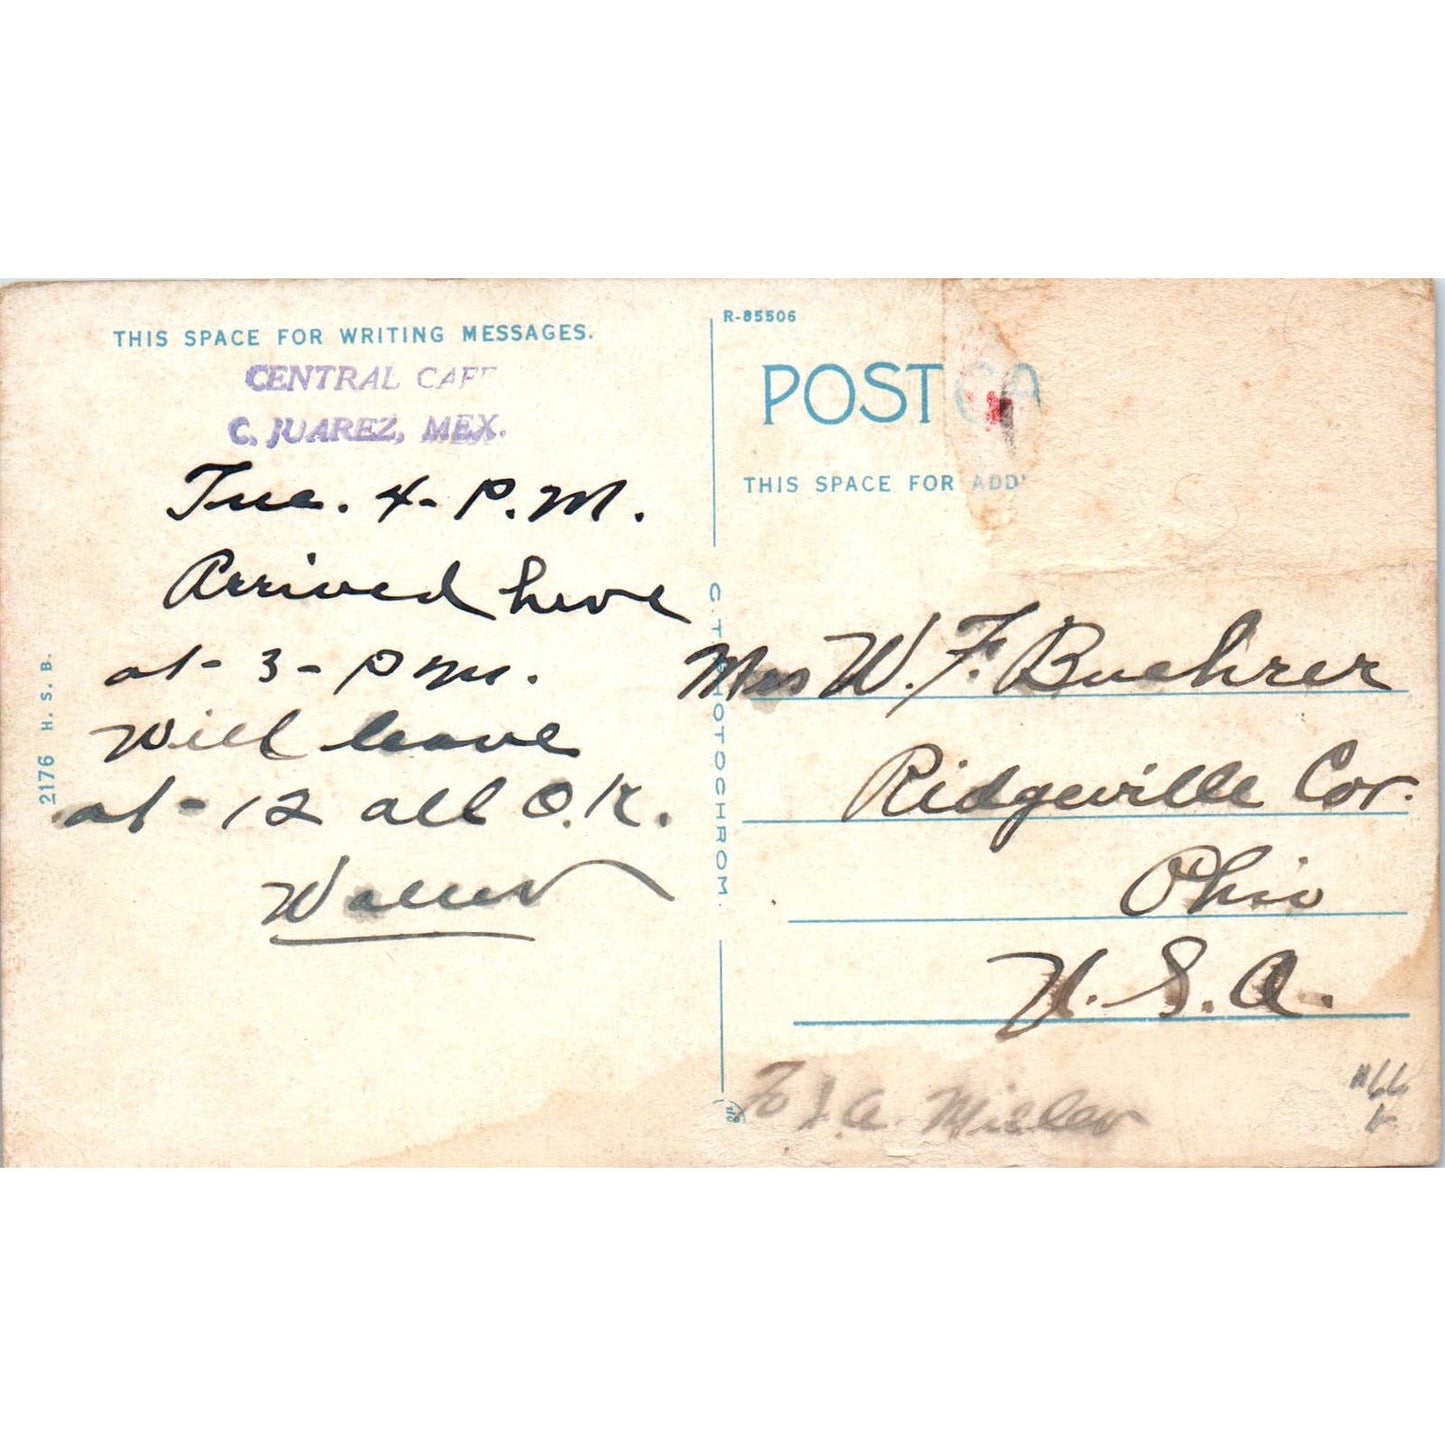 THIS SPACE FOR WRITING MESSAGES.
CENTRAL CAFE
C. JUAREZ, MEX.
Tue. 4- P.M.
Arrived here
at- 3- P m.
Will leave
at- 12 all O.K.
Walter
2176 H. S. B.
C.T. PHOTOCHROM.
R-85506
POST CA
THIS SPACE FOR ADD
Mrs W. F. Buehrer
Ridgeville Cor.
Ohio
U. S. A.
To J. A. Miller